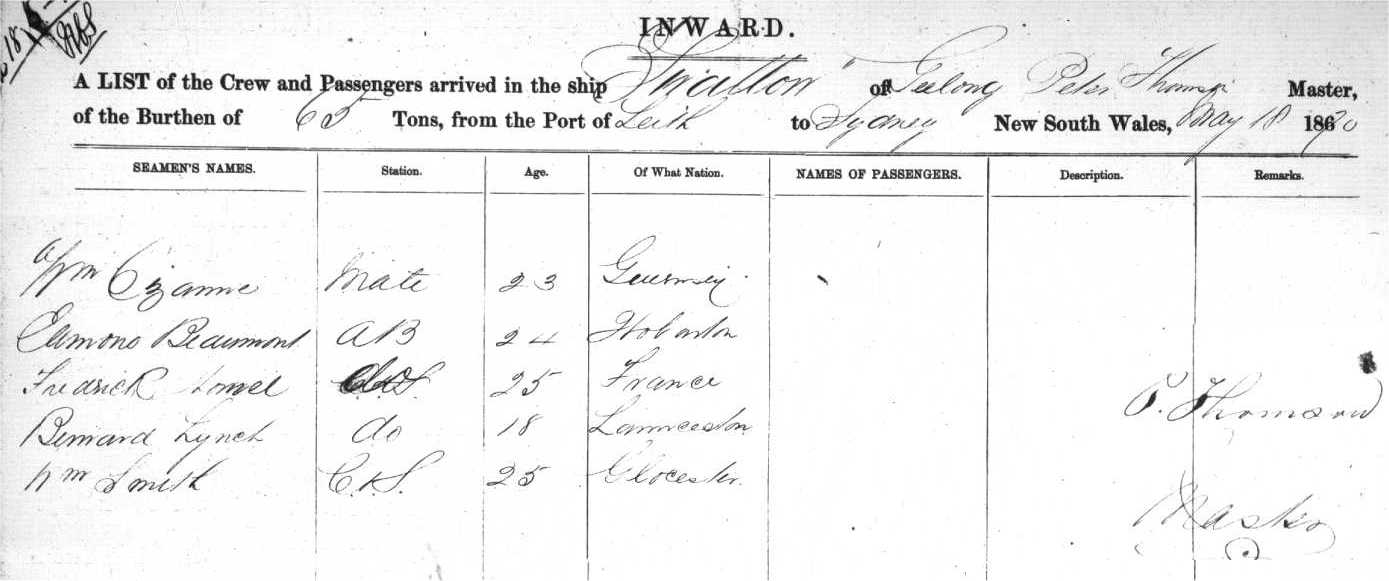 18
INWARD.
A LIST of the Crew and Passengers arrived in the ship of Geelong Peter Thomson Master,
of the Burthen of 65 Tons, from the Port of Leith to Sydney New South Wales, May 18 1870
SEAMEN'S NAMES. Station. Age. Of What Nation. NAMES OF PASSENGERS. Description. Remarks.
Wm Mate 23 Guernsey
Edmond Beaumont AB 24 Hobarton
Fredrick do 25 France
Bernard Lynch do 18 Launceston
P. Thomson
Wm Smith C&S. 25 Glocester
Master